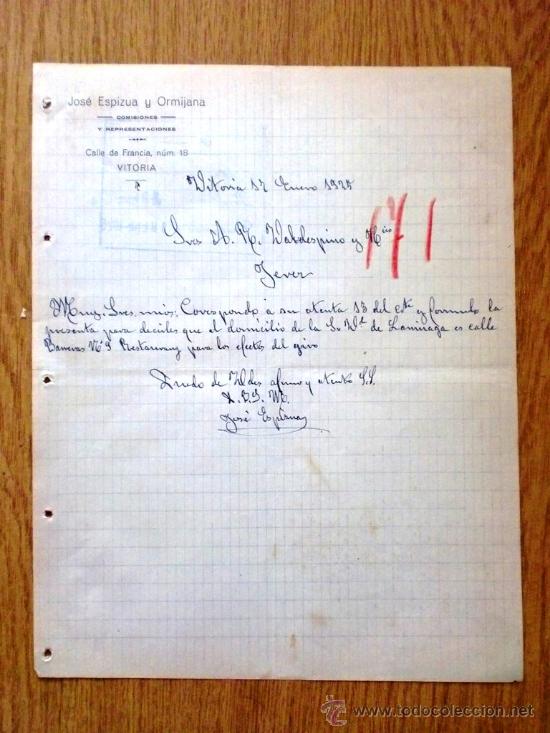 José Espizua y Ormijana
COMISIONES
Y REPRESENTACIONES
Calle de Francia, núm. 18
VITORIA
Vitoria 17 Enero 1925
Sres A. R. Valdespino y Hno
Jerez
171
Muy Sres. mios: Correspondo á su atenta 13 del cte y formulo la
presente para decirles que el domicilio de la Sra Vda de es calle
Nº 9 Restaurant para los efectos del giro
Quedo de Vdes afmo y atento S.S.
José Espizua
www.todocoleccion.net